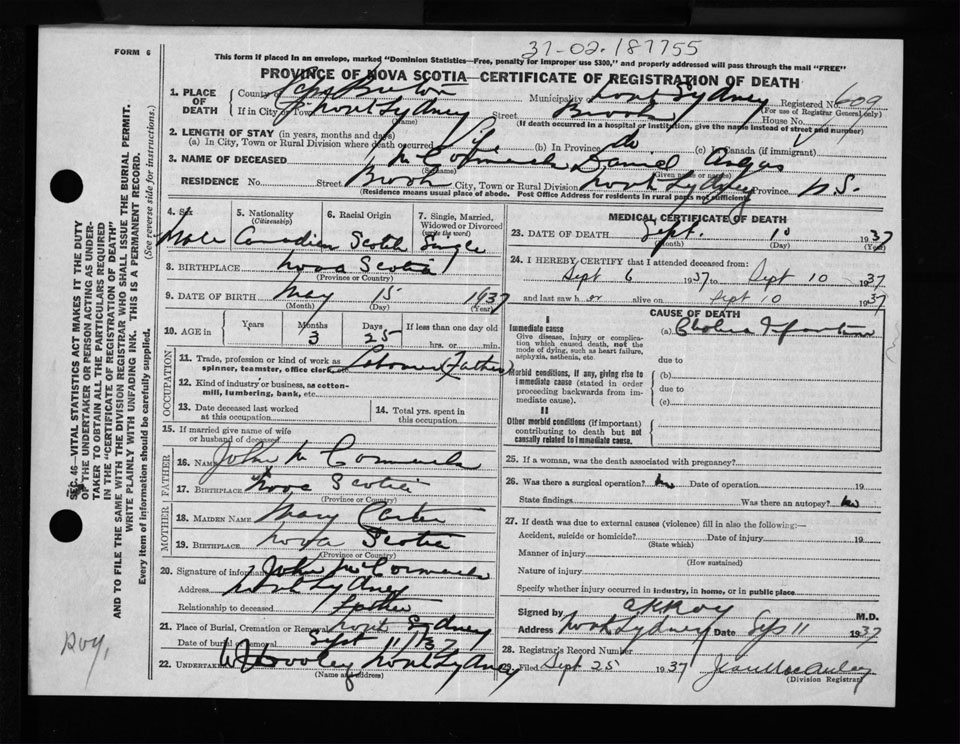 37-02.187755
FORM 6
This form if placed in an envelope, marked "Dominion Statistics—Free, penalty for improper use $300," and properly addressed will pass through the mail "FREE"
PROVINCE OF NOVA SCOTIA—CERTIFICATE OF REGISTRATION OF DEATH
1. PLACE OF DEATH
County of Cape Breton Municipality North Sydney Registered No. 609
(For use of Registrar General only)
If in City or Town North Sydney Street Brook House No.
(Name) (If death occurred in a hospital or institution, give the name instead of street and number)
2. LENGTH OF STAY (in years, months and days)
(a) In City, Town or Rural Division where death occurred Life (b) In Province do (c) In Canada (if immigrant)
3. NAME OF DECEASED McCormack Daniel Angus
(Surname) (Given name or names)
RESIDENCE No. Street Brook City, Town or Rural Division North Sydney Province N.S.
(Residence means usual place of abode. Post Office Address for residents in rural parts not sufficient)
4. Sex Male
5. Nationality (Citizenship) Canadian
6. Racial Origin Scotch
7. Single, Married, Widowed or Divorced (write the word) Single
8. BIRTHPLACE Nova Scotia
(Province or Country)
9. DATE OF BIRTH May 15 1937
(Month) (Day) (Year)
10. AGE in Years Months 3 Days 25 If less than one day old hrs. or min.
OCCUPATION
11. Trade, profession or kind of work as spinner, teamster, office clerk, Laborer (Father)
12. Kind of industry or business, as cotton-mill, lumbering, bank, etc.
13. Date deceased last worked at this occupation
14. Total yrs. spent in this occupation
15. If married give name of wife or husband of deceased
FATHER
16. NAME John McCormack
17. BIRTHPLACE Nova Scotia
(Province or Country)
MOTHER
18. MAIDEN NAME Mary Carter
19. BIRTHPLACE Nova Scotia
(Province or Country)
20. Signature of informant John McCormack
Address North Sydney
Relationship to deceased Father
21. Place of Burial, Cremation or Removal North Sydney
Date of burial or removal Sept 11/37
22. UNDERTAKER North Sydney
(Name and address)
MEDICAL CERTIFICATE OF DEATH
23. DATE OF DEATH Sept. 10 1937
(Month) (Day) (Year)
24. I HEREBY CERTIFY that I attended deceased from:
Sept 6 1937 to Sept 10 1937
and last saw h er alive on Sept 10 1937
CAUSE OF DEATH
I
Immediate cause
Give disease, injury or complication which caused death, not the mode of dying, such as heart failure, asphyxia, asthenia, etc.
(a) Cholera Infantum
due to
Morbid conditions, if any, giving rise to immediate cause (stated in order proceeding backwards from immediate cause).
(b)
due to
(c)
II
Other morbid conditions (if important) contributing to death but not causally related to immediate cause.
25. If a woman, was the death associated with pregnancy?
26. Was there a surgical operation? No Date of operation 19
State findings Was there an autopsy? No
27. If death was due to external causes (violence) fill in also the following:—
Accident, suicide or homicide? Date of injury 19
(State which)
Manner of injury
(How sustained)
Nature of injury
Specify whether injury occurred in industry, in home, or in public place
Signed by M.D.
Address North Sydney Date Sep 11 1937
28. Registrar's Record Number
29. Filed Sept 25 1937
(Division Registrar)
SEC. 46—VITAL STATISTICS ACT MAKES IT THE DUTY
OF THE UNDERTAKER OR PERSON ACTING AS UNDERTAKER TO OBTAIN ALL THE PARTICULARS REQUIRED
IN THE "CERTIFICATE OF REGISTRATION OF DEATH"
AND TO FILE THE SAME WITH THE DIVISION REGISTRAR WHO SHALL ISSUE THE BURIAL PERMIT.
WRITE PLAINLY WITH UNFADING INK. THIS IS A PERMANENT RECORD.
Every item of information should be carefully supplied. (See reverse side for instructions.)